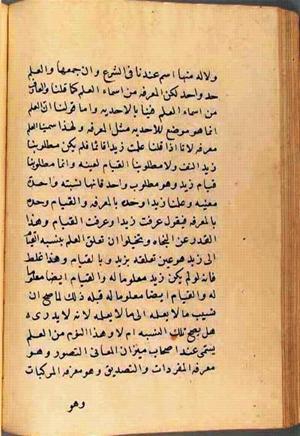 ولاله منها اسم عندنا في الشرع وان جمعها والعلم
حد واحد لكن المعرفه من اسماء العلم كما قلنا والعلم
من اسماء العلم فينا بالاحديه واما قولنا ان العلم
انما هو موضع للاحديه مثل المعرفه ولهذا سمينا العلم
معرفه لانا اذا قلنا علمت زيدا قائما فلم يكن مطلوبنا
زيد النفسه ولا مطلوبنا القيام لعينه وانما مطلوبنا
قيام زيد وهو مطلوب واحد فانها نسبته واحدة
معينه وعلمنا زيدا وحده بالمعرفه والقيام وحده
بالمعرفه فنقول عرفت زيدا وعرفت القيام وهذا
القدر عن النجاه وتخيلوا ان تعلق العلم بنسبه القيام
الى زيد هو عين تعلقه بزيد و بالقيام وهذا غلط
فانه لو لم يكن زيد معلوما له والقيام ايضا معلوما
له والقيام ايضا معلوما له قبله ذلك لما صح ان
نسب ما لا يعلمه الى ما لا يعلمه لانه لا يدري
هل يصح تلك النسبه ام لا وهذا النوع من العلم
يسمى عند اصحاب ميزان المعاني التصور وهو
معرفه المفردات والتصديق وهو معرفه المركبات
وهو